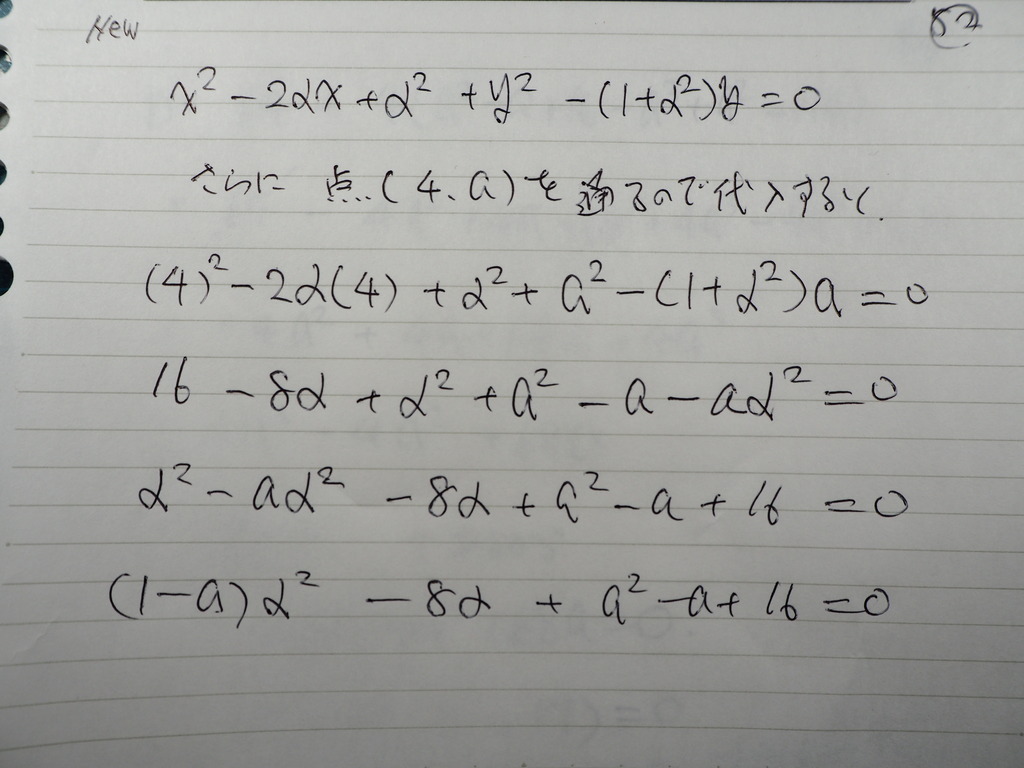 New
52
x² - 2αx + α² + y² - (1+α²)y = 0
さらに 点(4, a)を通るので代入すると,
(4)² - 2α(4) + α² + a² - (1+α²)a = 0
16 - 8α + α² + a² - a - aα² = 0
α² - aα² - 8α + a² - a + 16 = 0
(1-a)α² - 8α + a² - a + 16 = 0